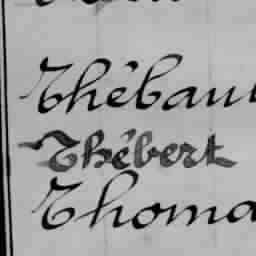 Thébau
Thébert
Thoma